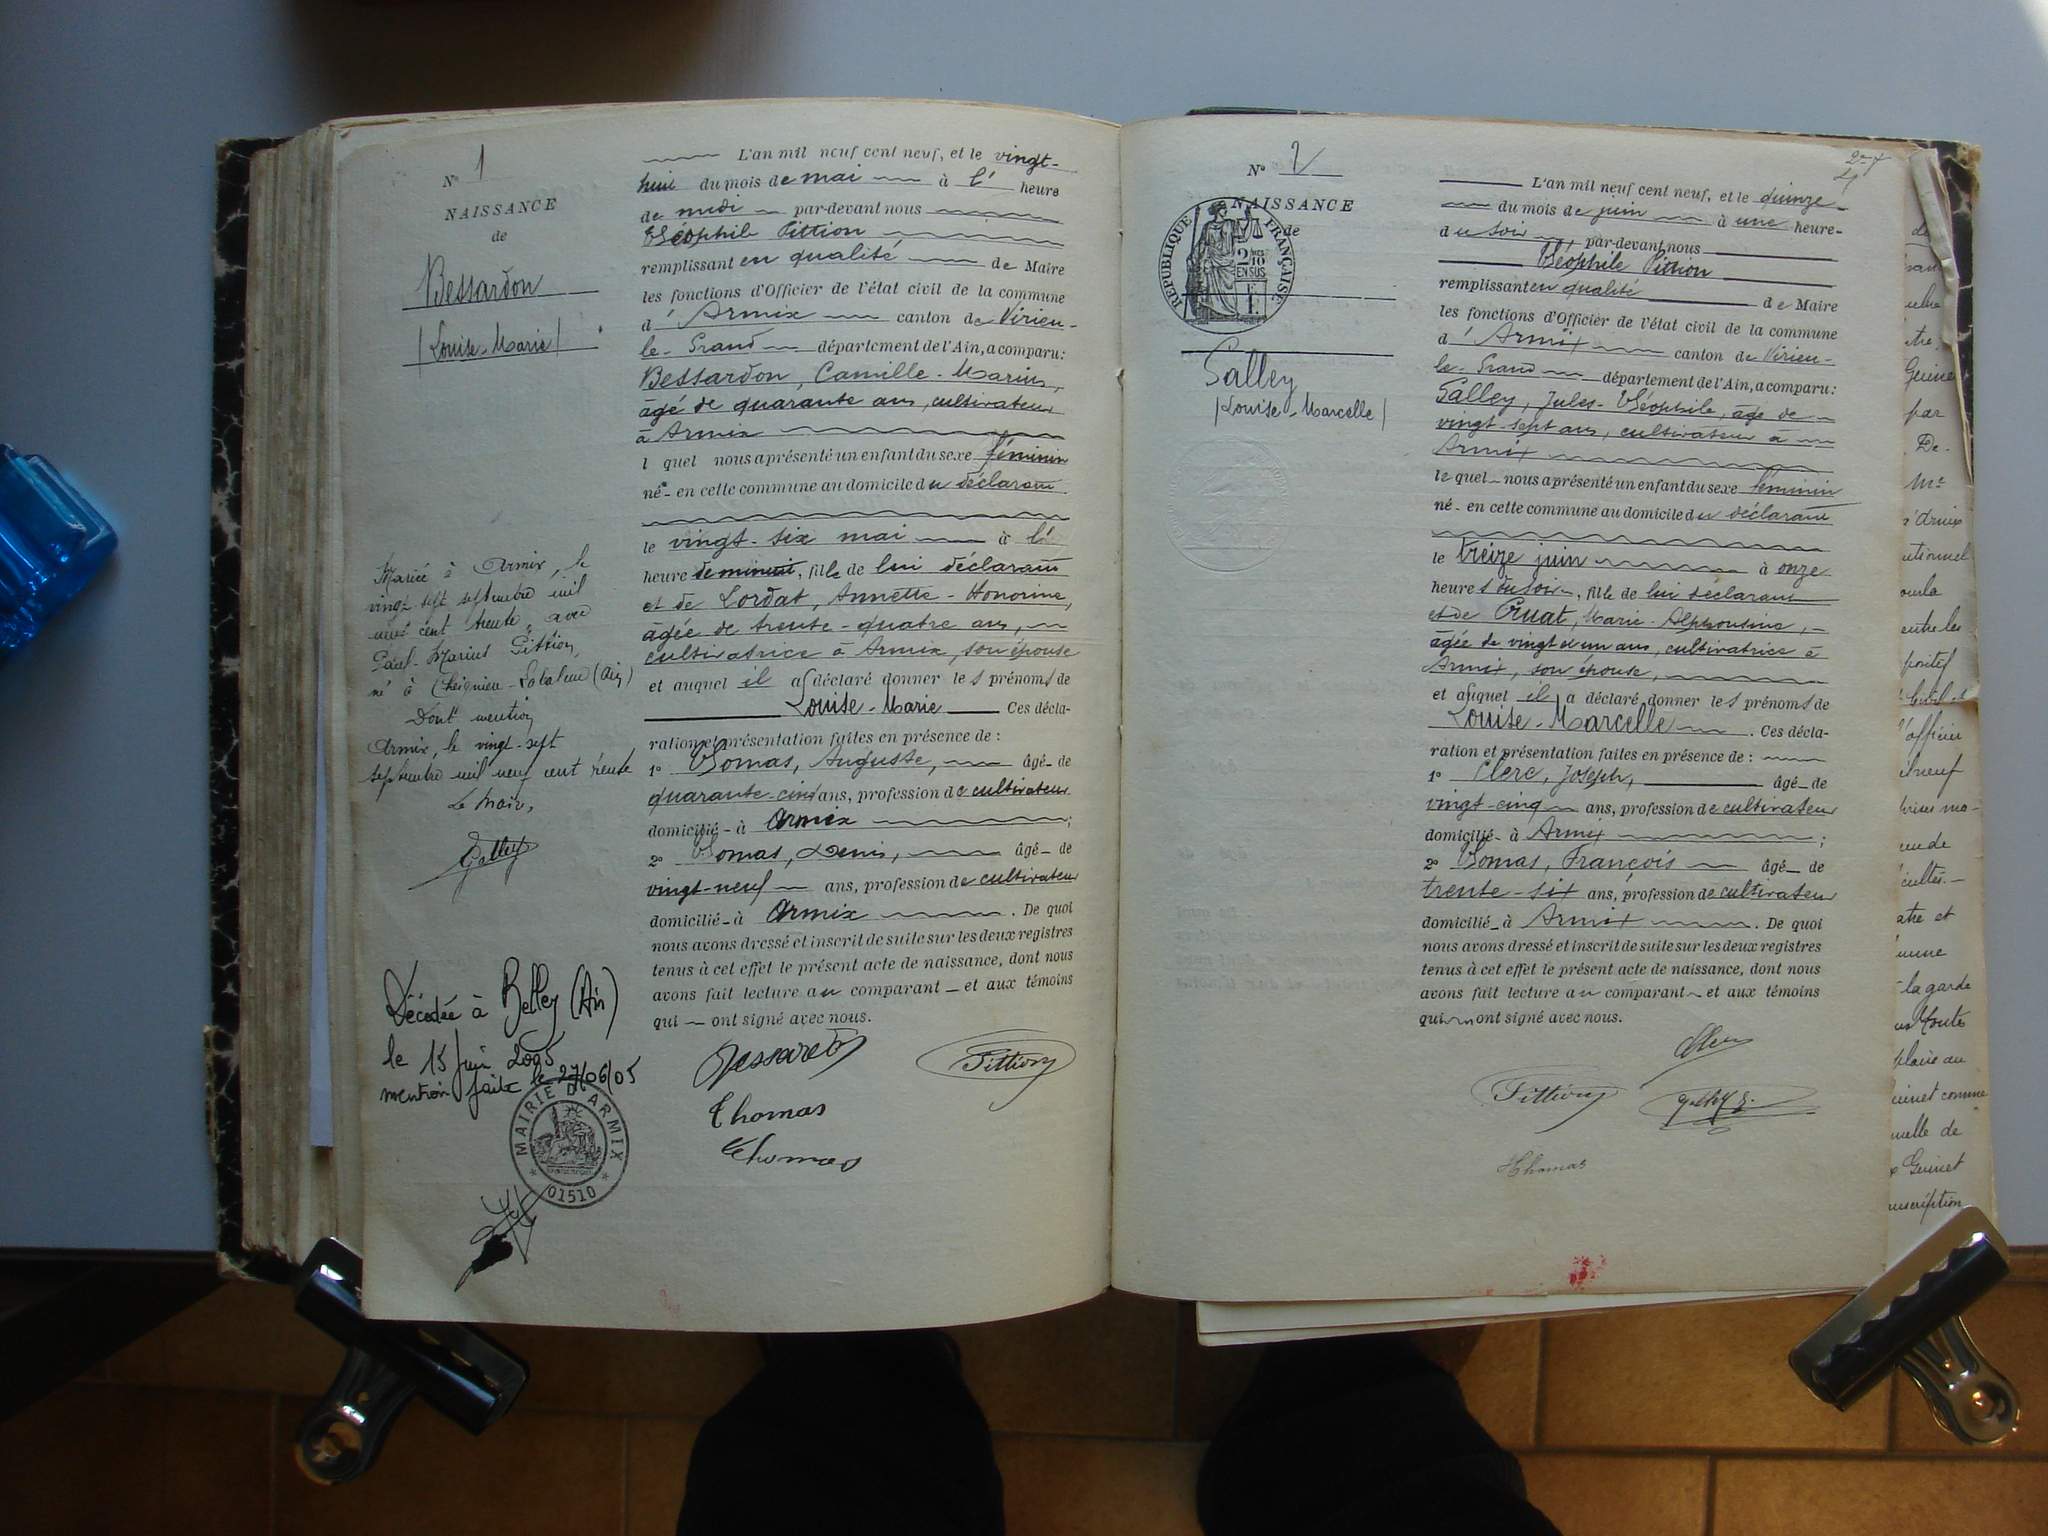 N° 1
NAISSANCE
de
Bessardon
(Louise-Marie)
Mariée à Armix, le
vingt sept septembre mil
neuf cent trente, avec
Paul-Marius Pittion,
né à Cheignieu-Labalme (Ain)
Dont mention
Armix, le vingt-sept
septembre mil neuf cent trente
Le Maire,
Décédée à Belley (Ain)
le 15 Juin 2005
mention faite le 27/06/05
MAIRIE D'ARMIX
01510
L'an mil neuf cent neuf, et le vingt-
huit du mois de mai à l'
heure
de midi par-devant nous
Théophile Pittion
remplissant en qualité de Maire
les fonctions d'Officier de l'état civil de la commune
d' Armix canton de Virieu-
le-Grand département de l'Ain, a comparu:
Bessardon, Camille-Marius,
âgé de quarante ans, cultivateur
à Armix
l quel nous a présenté un enfant du sexe féminin
né- en cette commune au domicile du déclarant
le vingt-six mai à l'
heure de minuit, fille de lui déclarant
et de Lordat, Annette-Honorine,
âgée de trente-quatre ans,
cultivatrice à Armix, son épouse
et auquel il a déclaré donner les prénoms de
Louise-Marie Ces décla-
ration et présentation faites en présence de :
1° Thomas, Auguste, âgé- de
quarante-cinq ans, profession de cultivateur
domicilié- à Armix ;
2° Thomas, Denis, âgé- de
vingt-neuf ans, profession de cultivateur
domicilié-à Armix . De quoi
nous avons dressé et inscrit de suite sur les deux registres
tenus à cet effet le présent acte de naissance, dont nous
avons fait lecture au comparant et aux témoins
qui ont signé avec nous.
Bessardon
Pittion
Thomas
Thomas
N° 2
NAISSANCE
de
RÉPUBLIQUE FRANÇAISE
2/10 EN SUS
Galley
(Louise-Marcelle)
L'an mil neuf cent neuf, et le quinze
du mois de juin à une heure-
du soir par-devant nous
Théophile Pittion
remplissant en qualité de Maire
les fonctions d'Officier de l'état civil de la commune
d' Armix canton de Virieu-
le-Grand département de l'Ain, a comparu:
Galley, Jules-Théophile, âgé de
vingt-sept ans, cultivateur à
Armix
le quel nous a présenté un enfant du sexe féminin
né- en cette commune au domicile du déclarant
le treize juin à onze
heures du soir, fille de lui déclarant
et de Cruat, Marie-Alphonsine,
âgée de vingt et un ans, cultivatrice à
Armix, son épouse,
et auquel il a déclaré donner les prénoms de
Louise-Marcelle . Ces décla-
ration et présentation faites en présence de :
1° Clerc, Joseph, âgé- de
vingt-cinq ans, profession de cultivateur
domicilié- à Armix ;
2° Thomas, François âgé- de
trente-six ans, profession de cultivateur
domicilié- à Armix . De quoi
nous avons dressé et inscrit de suite sur les deux registres
tenus à cet effet le présent acte de naissance, dont nous
avons fait lecture au comparant et aux témoins
qui ont signé avec nous.
Pittion
Thomas
par
De
entre les
l'officier
neuf
cultes
atre et
la garde
Toutes
comme
nuelle de
Guinet